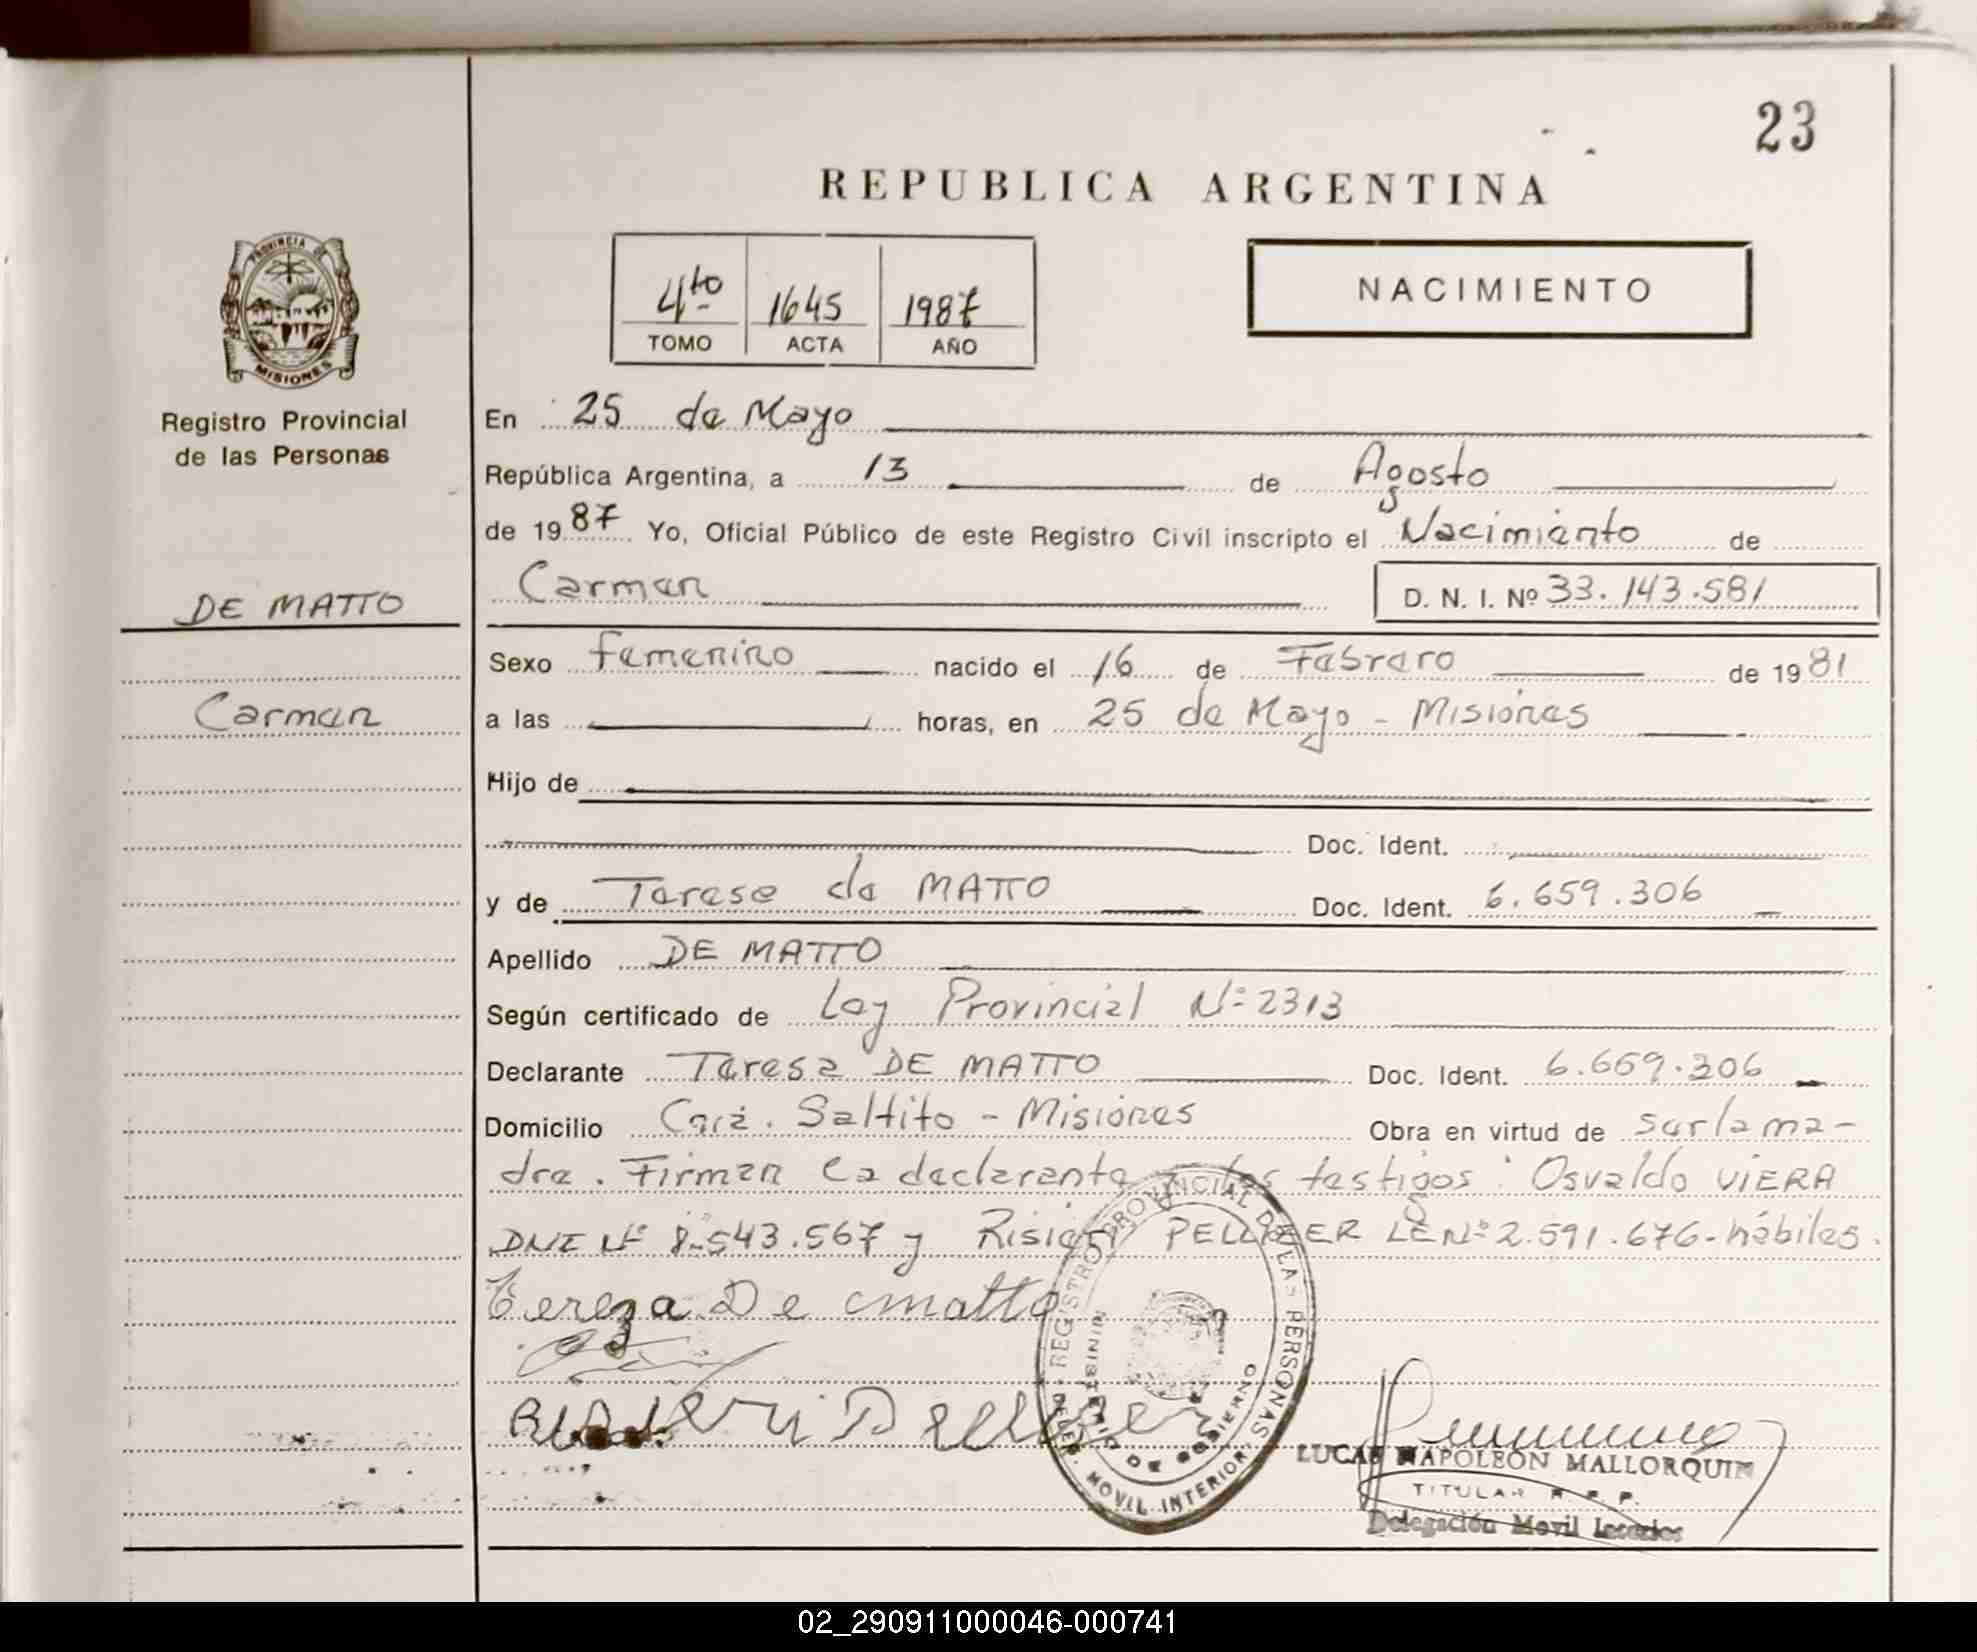 23
REPUBLICA ARGENTINA
PROVINCIA DE
MISIONES
4to 1645 1987
TOMO ACTA AÑO
NACIMIENTO
Registro Provincial
de las Personas
En 25 de Mayo
República Argentina, a 13 de Agosto
de 1987 Yo, Oficial Público de este Registro Civil inscripto el Nacimiento de
DE MATTO
Carmen D. N. I. Nº 33.143.581
Sexo femenino nacido el 16 de Febrero de 1981
Carmen
a las horas, en 25 de Mayo - Misiones
Hijo de
Doc. Ident.
y de Terese de MATTO Doc. Ident. 6.659.306
Apellido DE MATTO
Según certificado de Ley Provincial Nº 2313
Declarante Teresa DE MATTO Doc. Ident. 6.659.306
Domicilio Saltito - Misiones Obra en virtud de ser la ma-
dre. Firman la declarante y los testigos: Osvaldo VIERA
DNI Nº 8.543.567 y PELLIZER LE Nº 2.591.676 - hábiles.
Tereza De Matto
REGISTRO PROVINCIAL DE LAS PERSONAS
MINISTERIO DE GOBIERNO
DELEG. MOVIL INTERIOR
LUCAS NAPOLEON MALLORQUIN
TITULAR R. P. P.
Delegación Movil Interior
02_290911000046-000741